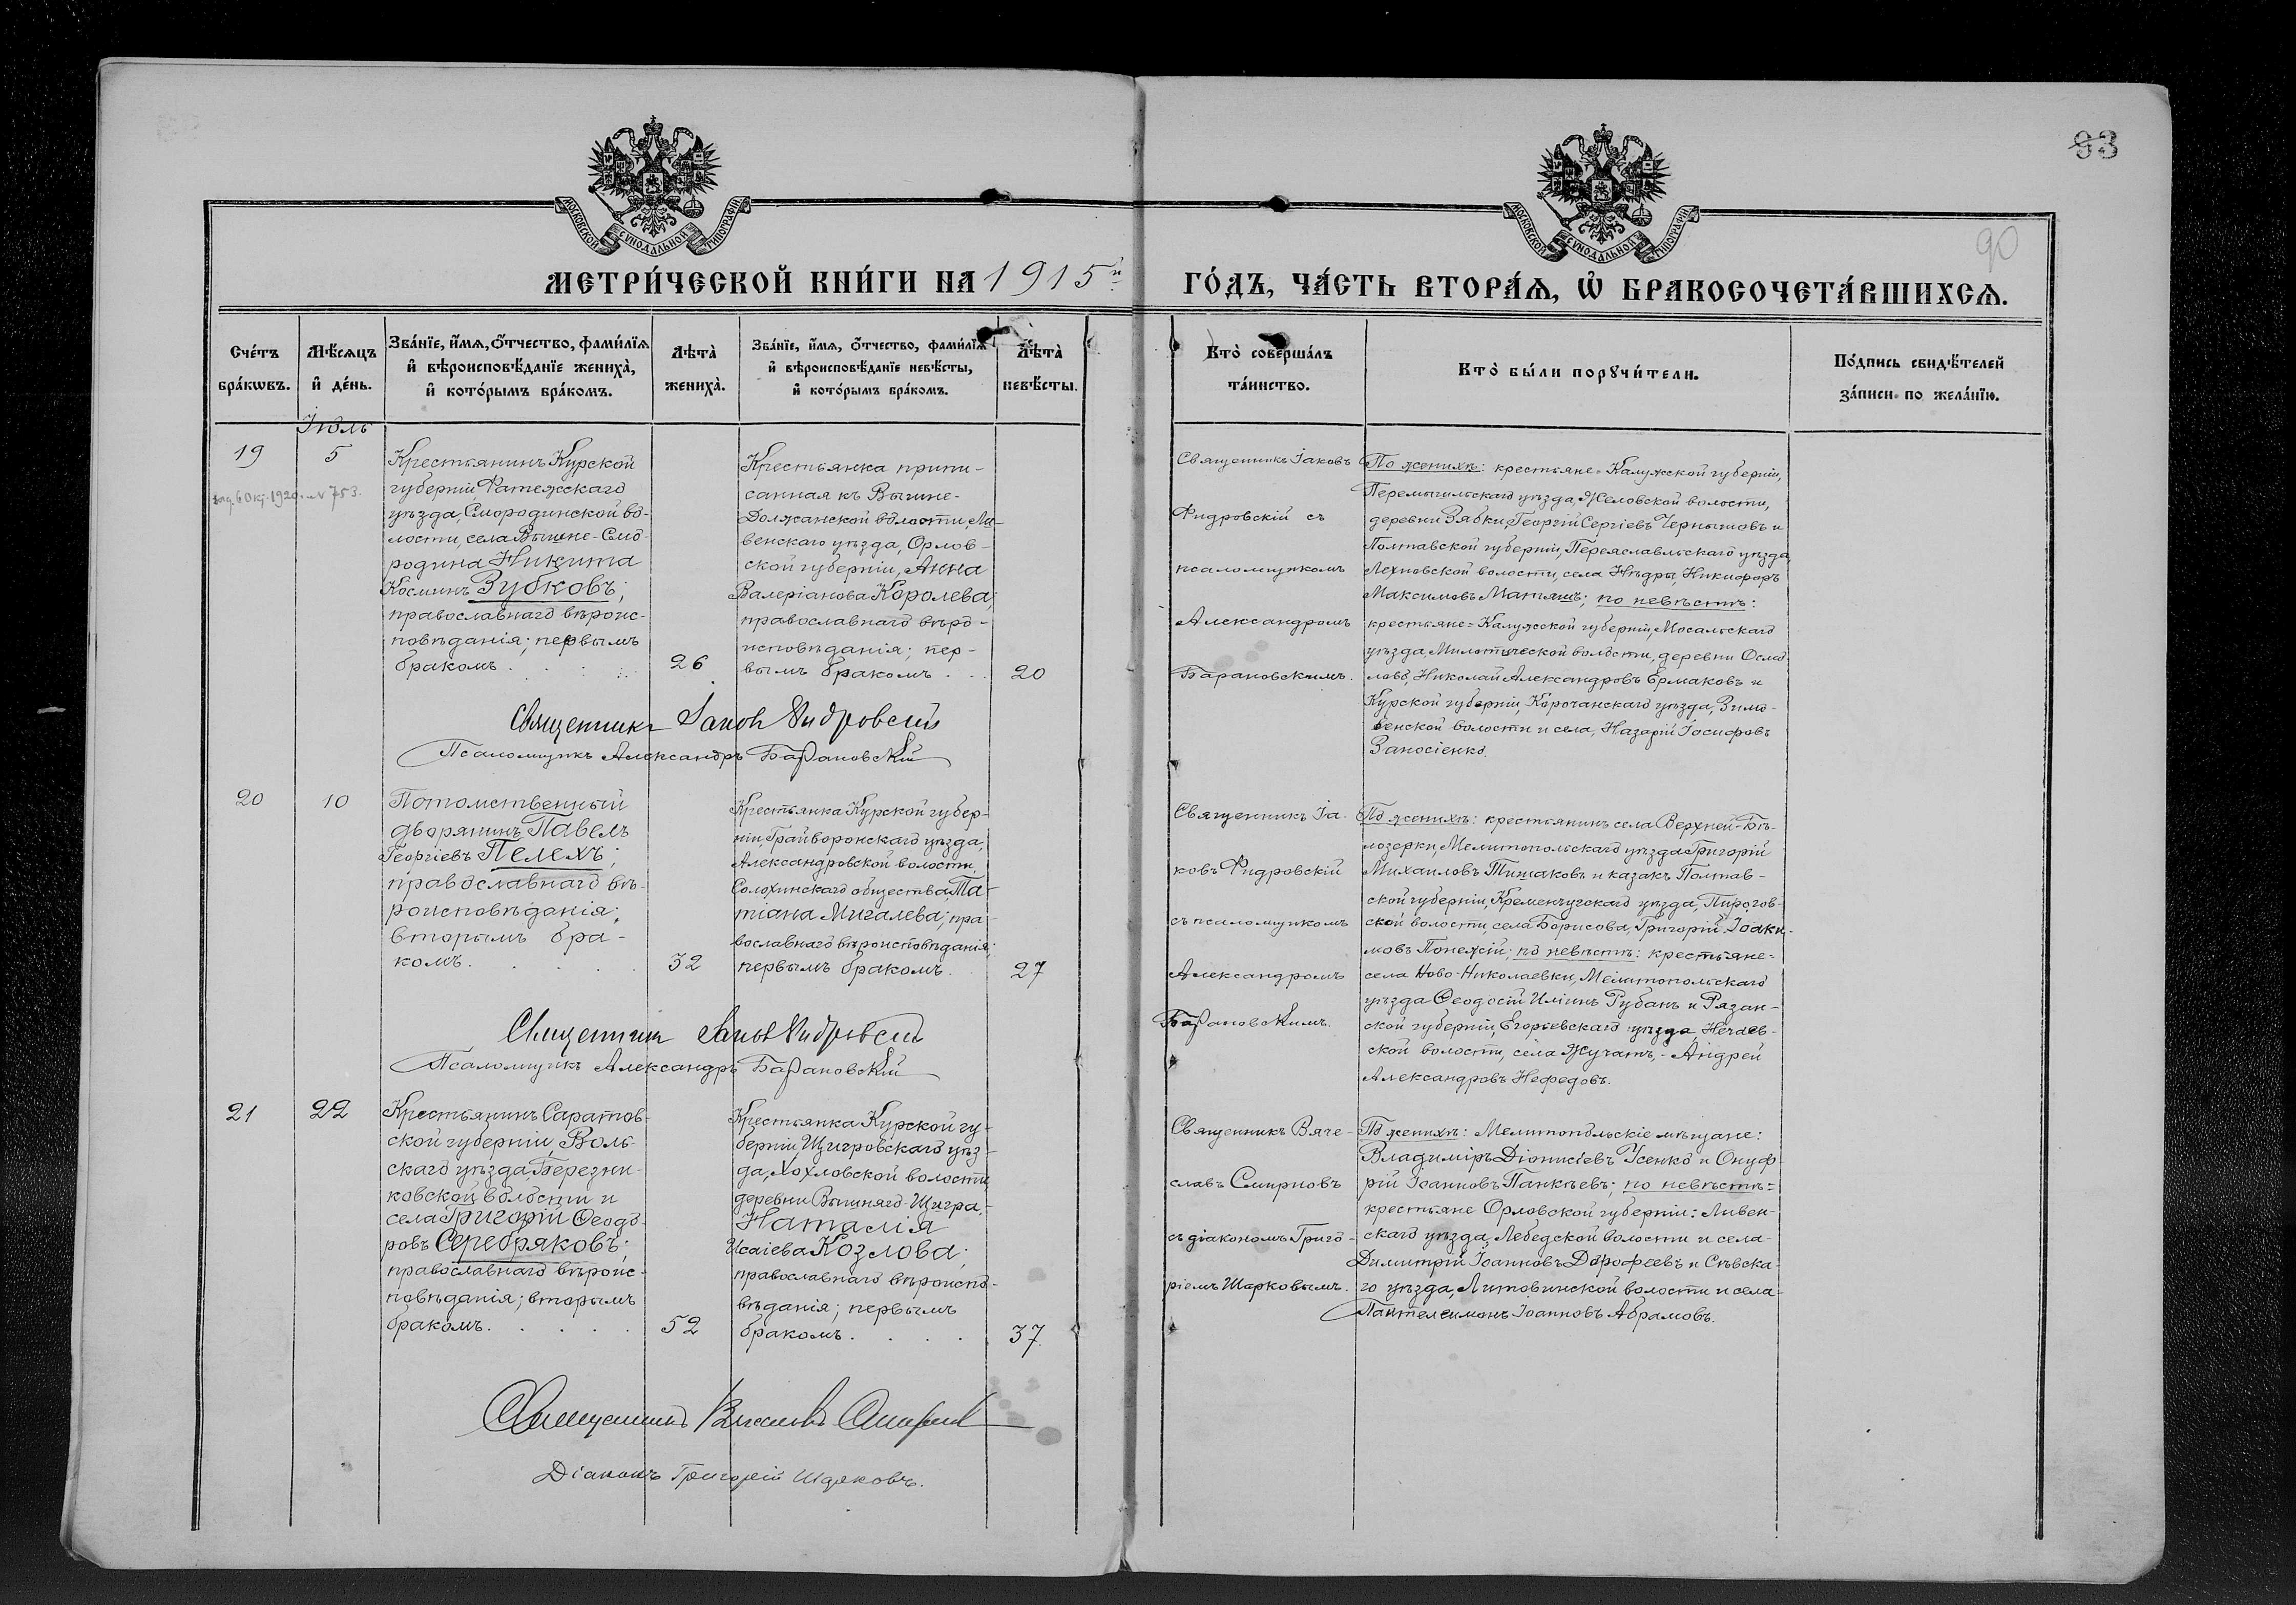 93
90
МОСКОВСКОЙ СѴНОДАЛЬНОЙ ТИПОГРАФІИ
МОСКОВСКОЙ СѴНОДАЛЬНОЙ ТИПОГРАФІИ
МЕТРИ́ЧЕСКОЙ КНИ́ГИ НА 1915й
ГО́ДЪ, ЧА́СТЬ ВТОРА́Ѧ, Ѡ҆ БРАКОСОЧЕТА́ВШИХСѦ.
Сче́тъ
бра́кѡвъ.
Мѣ́сѧцъ
и҆ де́нь.
Зва́нїе, и҆́мѧ, ѻ҆́тчество, фами́лїѧ
и҆ вѣроисповѣ́данїе жениха̀,
и҆ кото́рымъ бра́комъ.
Лѣта̀
жениха̀.
Зва́нїе, и҆́мѧ, ѻ҆́тчество, фами́лїѧ
и҆ вѣроисповѣ́данїе невѣ́сты,
и҆ кото́рымъ бра́комъ.
Лѣта̀
невѣ́сты.
Кто̀ соверша́лъ
та́инство.
Кто̀ бы́ли порꙋчи́тели.
По́дпись свидѣ́телей
за́писи по жела́нїю.
Іюль
19
5
1920. № 753.
Крестьянинъ Курской
губерніи Фатежскаго
уѣзда, Смородинской во-
лости, села Вышне-Смо-
родина Никита
Косминъ Зубковъ;
православнаго вѣроис-
повѣданія; первымъ
бракомъ . . . .
26
Крестьянка припи-
санная къ Вышне-
Должанской волости, Ли-
венскаго уѣзда, Орлов-
ской губерніи, Анна
Валеріанова Королева;
православнаго вѣро-
исповѣданія; пер-
вымъ бракомъ . . .
20
Священникъ Іаковъ
Фидровскій съ
псаломщикомъ
Александромъ
Барановскимъ.
По женихѣ: крестьяне= Калужской губерніи,
Перемышльскаго уѣзда, Желовской волости,
деревни Зябки, Георгій Сергіевъ Чернышовъ и
Полтавской губерніи, Переяславльскаго уѣзда,
Лехновской волости, села Нѣдры, Никифоръ
Максимовъ Матяшъ; по невѣстѣ:
крестьяне= Калужской губерніи, Мосальскаго
уѣзда, Милотической волости, деревни Осло-
лово, Николай Александровъ Ермаковъ и
Курской губерніи, Корочанскаго уѣзда, Зимо-
венской волости и села, Назарій Іосифовъ
Заносіенко.
Священникъ Іаковъ Фидровскій
Псаломщикъ Александръ Барановскій
20
10
Потомственный
дворянинъ Павелъ
Георгіевъ Пелехъ;
православнаго вѣ-
роисповѣданія;
вторымъ бра-
комъ. . . . .
32
Крестьянка Курской губер-
ніи, Грайворонскаго уѣзда,
Александровской волости,
Солохинскаго общества, Та-
тіана Мигалева; пра-
вославнаго вѣроисповѣданія;
первымъ бракомъ.
27
Священникъ Іа-
ковъ Фидровскій
съ псаломщикомъ
Александромъ
Барановскимъ.
По женихѣ: крестьянинъ села Верхней-Бѣ-
лозерки, Мелитопольскаго уѣзда Григорій
Михаиловъ Тишаковъ и казакъ Полтав-
ской губерніи, Кременчугскаго уѣзда, Пирогов-
ской волости, села Борисова, Григорій Іоаки-
мовъ Понежій; по невѣстѣ: крестьяне=
села Ново-Николаевки, Мелитопольскаго
уѣзда Ѳеодосій Иліинъ Рубанъ и Рязан-
ской губерніи, Егорьевскаго уѣзда, Нечаев-
ской волости, села Жучатъ, - Андрей
Александровъ Нефедовъ.
Священникъ Іаковъ Фидровскій
Псаломщикъ Александръ Барановскій
21
22
Крестьянинъ Саратов-
ской губерніи, Воль-
скаго уѣзда, Березни-
ковской волости и
села Григорій Ѳеодо-
ровъ Серебряковъ;
православнаго вѣроис-
повѣданія; вторымъ
бракомъ. . . . .
52
Крестьянка Курской гу-
берніи, Щигровскаго уѣз-
да, Хохловской волости,
деревни Вышняго Щигра,-
Наталія
Исаіева Козлова;
православнаго вѣроиспо-
вѣданія; первымъ
бракомъ. . . . .
37.
Священникъ Вяче-
славъ Смирновъ
съ діакономъ Григо-
ріемъ Шарковымъ.
По женихѣ: Мелитопольскіе мѣщане:
Владиміръ Діонисіевъ Усенко и Онуф-
рій Іоанновъ Панкѣевъ; по невѣстѣ=
крестьяне Орловской губерніи: Ливен-
скаго уѣзда, Лебедской волости и села-
Димитрій Іоанновъ Дорофеевъ и Сѣвска-
го уѣзда, Литовинской волости и села-
Пантелеимонъ Іоанновъ Абрамовъ.
Священникъ Вячеславъ Смирновъ
Діаконъ Григорій Шарковъ.